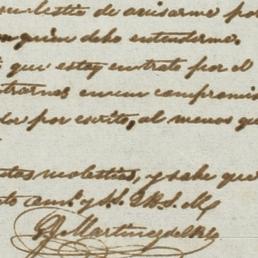 molestia de avisarme por
quien debo entenderme.
que estoy en trato por el
en un compromiso
por escrito, al menos que
molestias, y sabe que
S. M. B. S. M.
Martinez del Rio